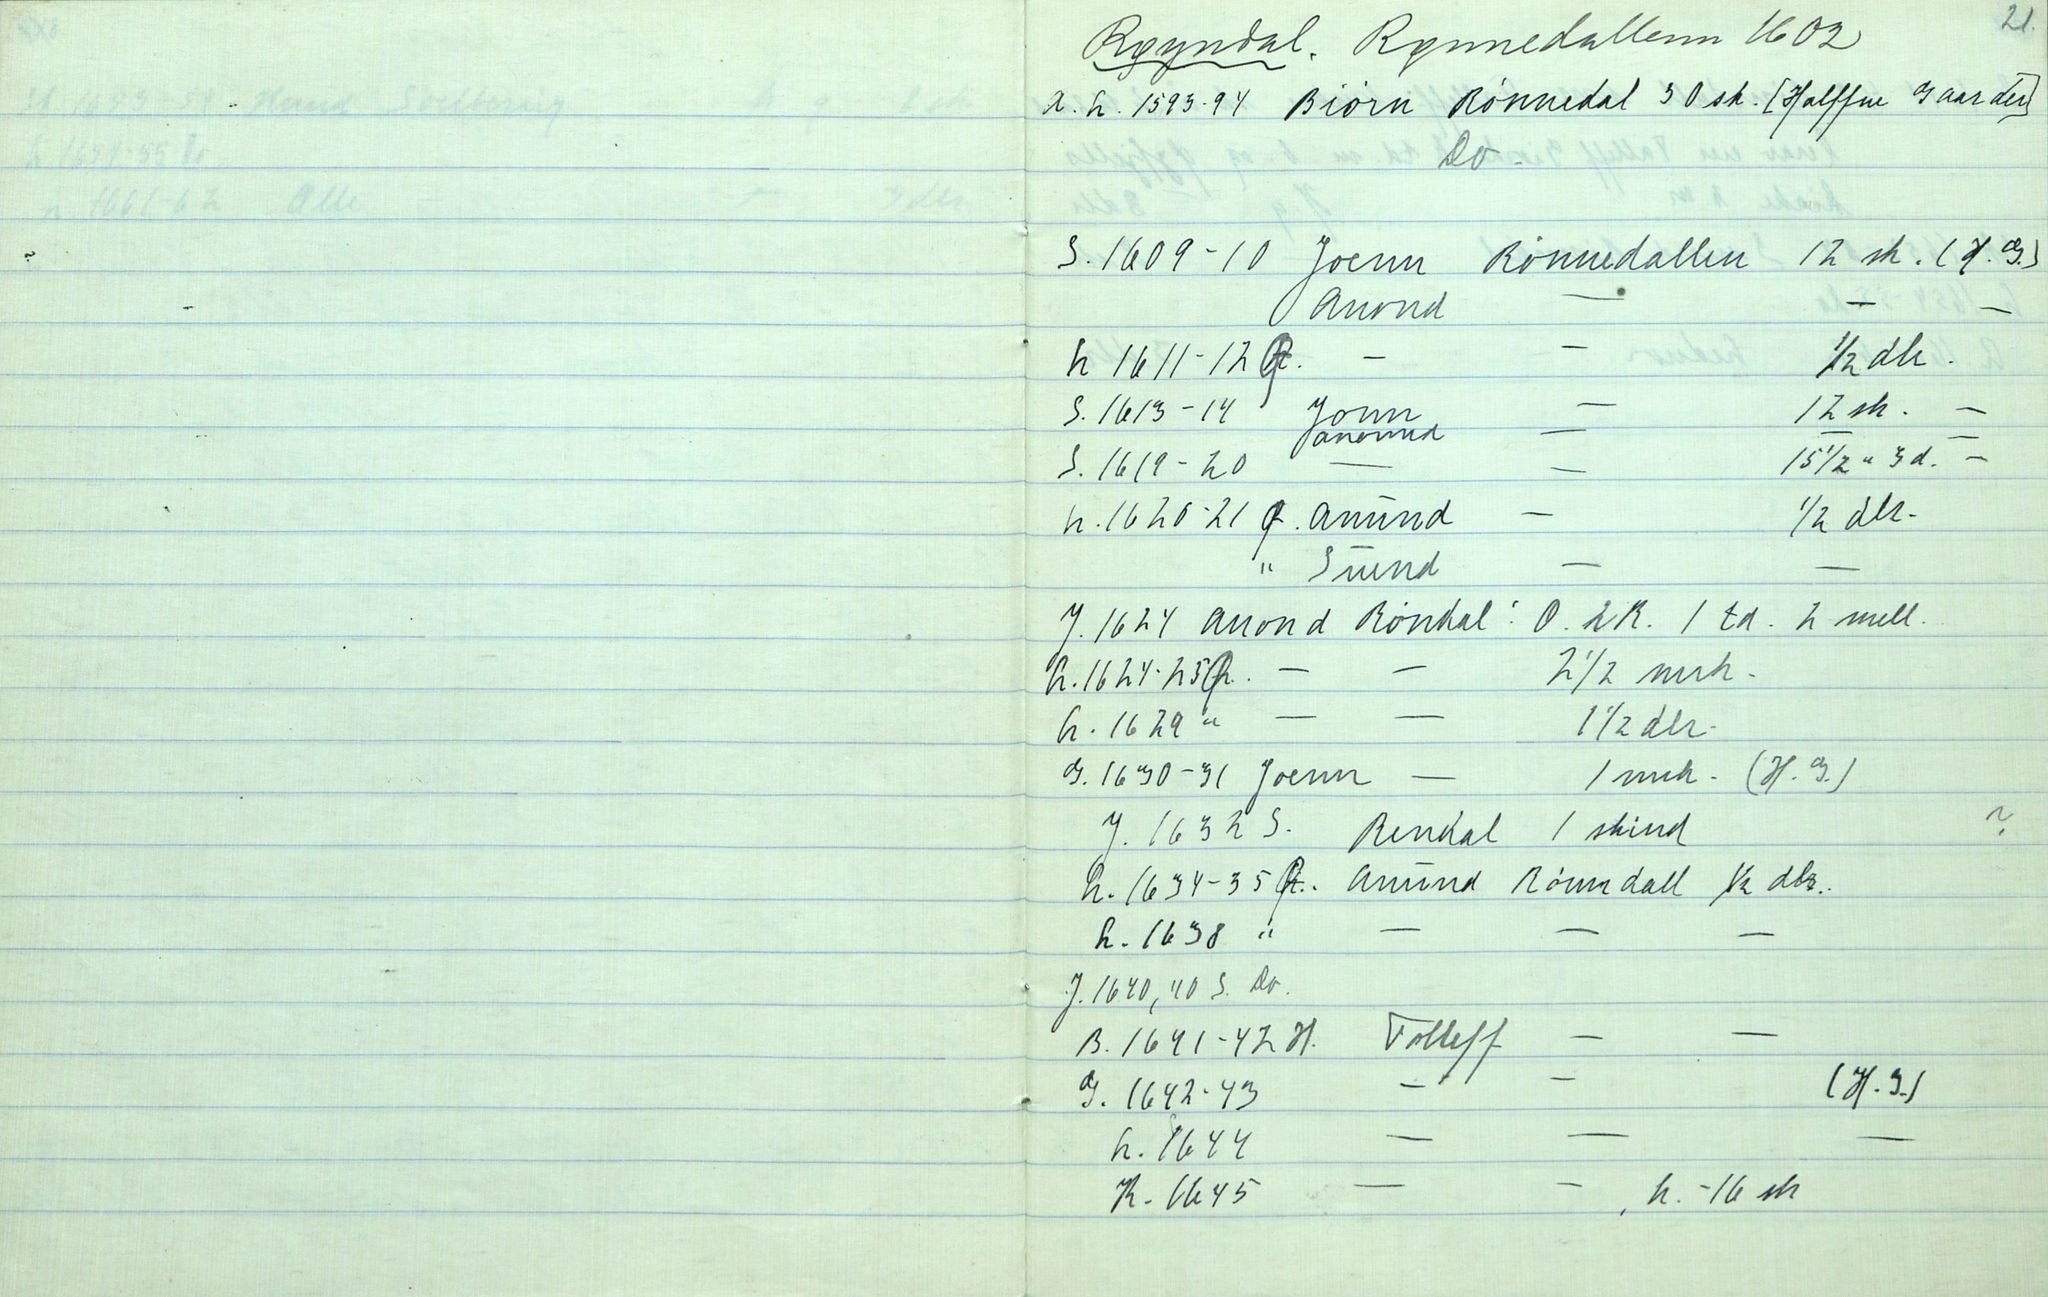 21.
Røyndal. Rønnedallenn 1602
X. L. 1593-94 Biørn Rønnedal 30 sk. [Halffue Gaarder]
Do -
S. 1609-10 Joenn Rønnedallen 12 sk. (H. G.)
Anond — — —
L 1611-12 R. — — 1/2 dlr.
S. 1613-14 Jonn — 12 sk. —
Anonnd — — —
S. 1619-20 — — 15 1/2 " 3 d. —
L. 1620-21 R. Anŭnd — 1/2 dlr.
" Suend — —
J. 1624 Anond Röndal: O. 2 R. 1 td. 2 mell.
L. 1624-25 R. — — 2 1/2 mrk.
L. 1629 " — — 1 1/2 dlr.
G. 1630-31 Joenn — 1 mrk. (H. G.)
J. 1632 S. Rendal 1 skind ?
L. 1634-35 R. Anŭnd Rönndall 1/2 dlr.
L. 1638 " — — —
J. 1640, 40 S. Do.
B. 1641-42 H. Tolleff — —
G. 1642-43 — — (H. G.)
L. 1644 — — —
K. 1645 — — , L. - 16 sk